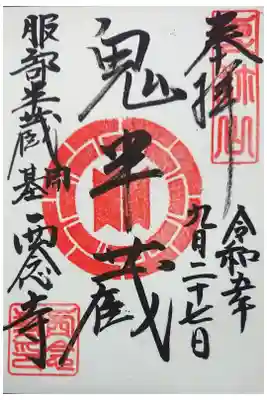 奉拝
令和五年
九月二十七日
鬼半蔵
服部半蔵開基
西念寺